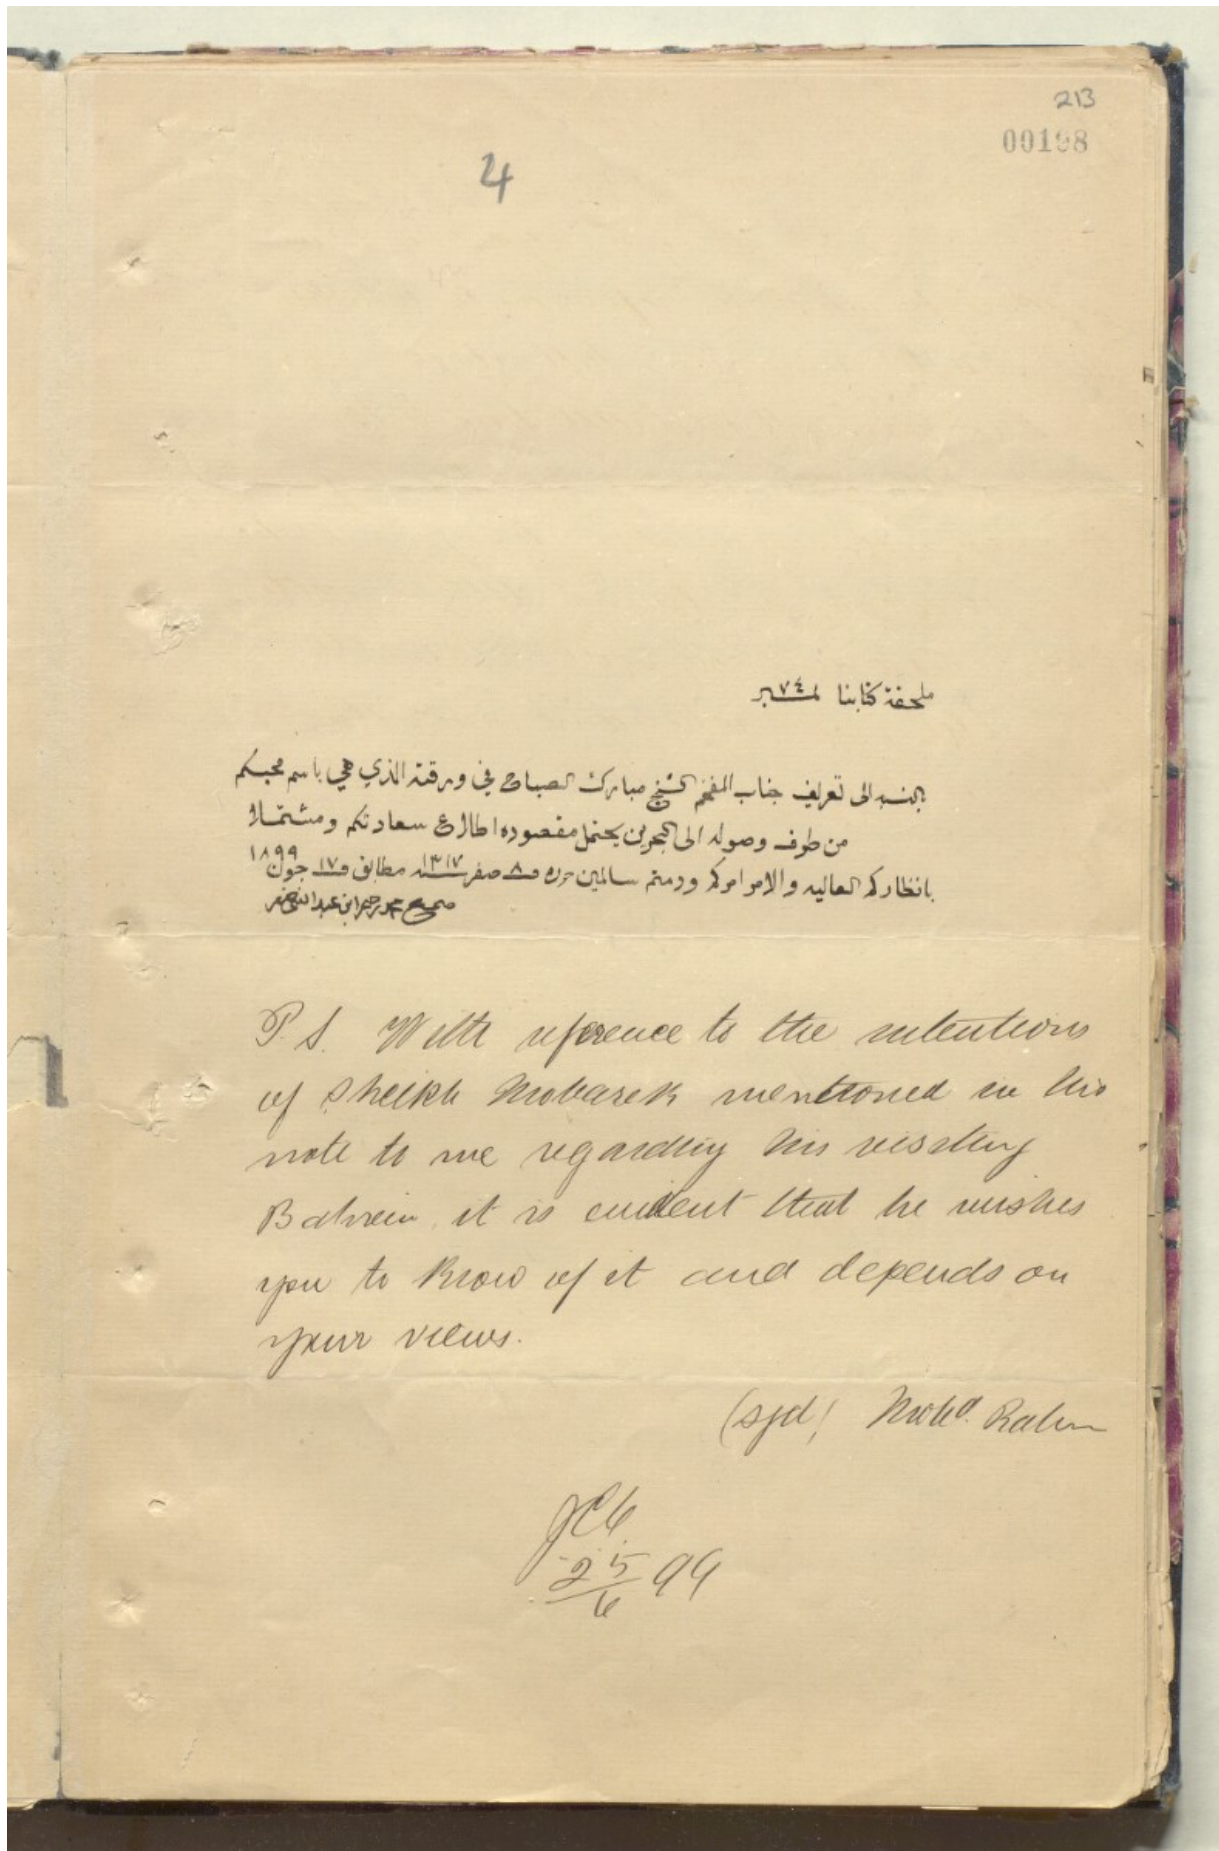 213
00198
4
ملحقة كتابنا لمـ ٧٤ ـبر
بالنسبه الى تعريف جناب المفخم الشيخ مبارك الصباح في ورقته الذي هي باسم محبكم
من طرف وصوله الى البحرين يحتمل مقصوده اطلاع سعادتكم ومشتملا
بانظاركم العاليه والامر امركم ودمتم سالمين حرره ٨ صفر ١٣١٧ مطابق ١٧ جون ١٨٩٩
صحيح محمد رحيم ابن عبد النبي صفر
P.S. With reference to the intentions
of Sheikh Mobarek mentioned in his
note to me regarding his visiting
Bahrein, it is evident that he wishes
you to know of it and depends on
your views.
(sgd) Mohd. Rahim
25/6 99